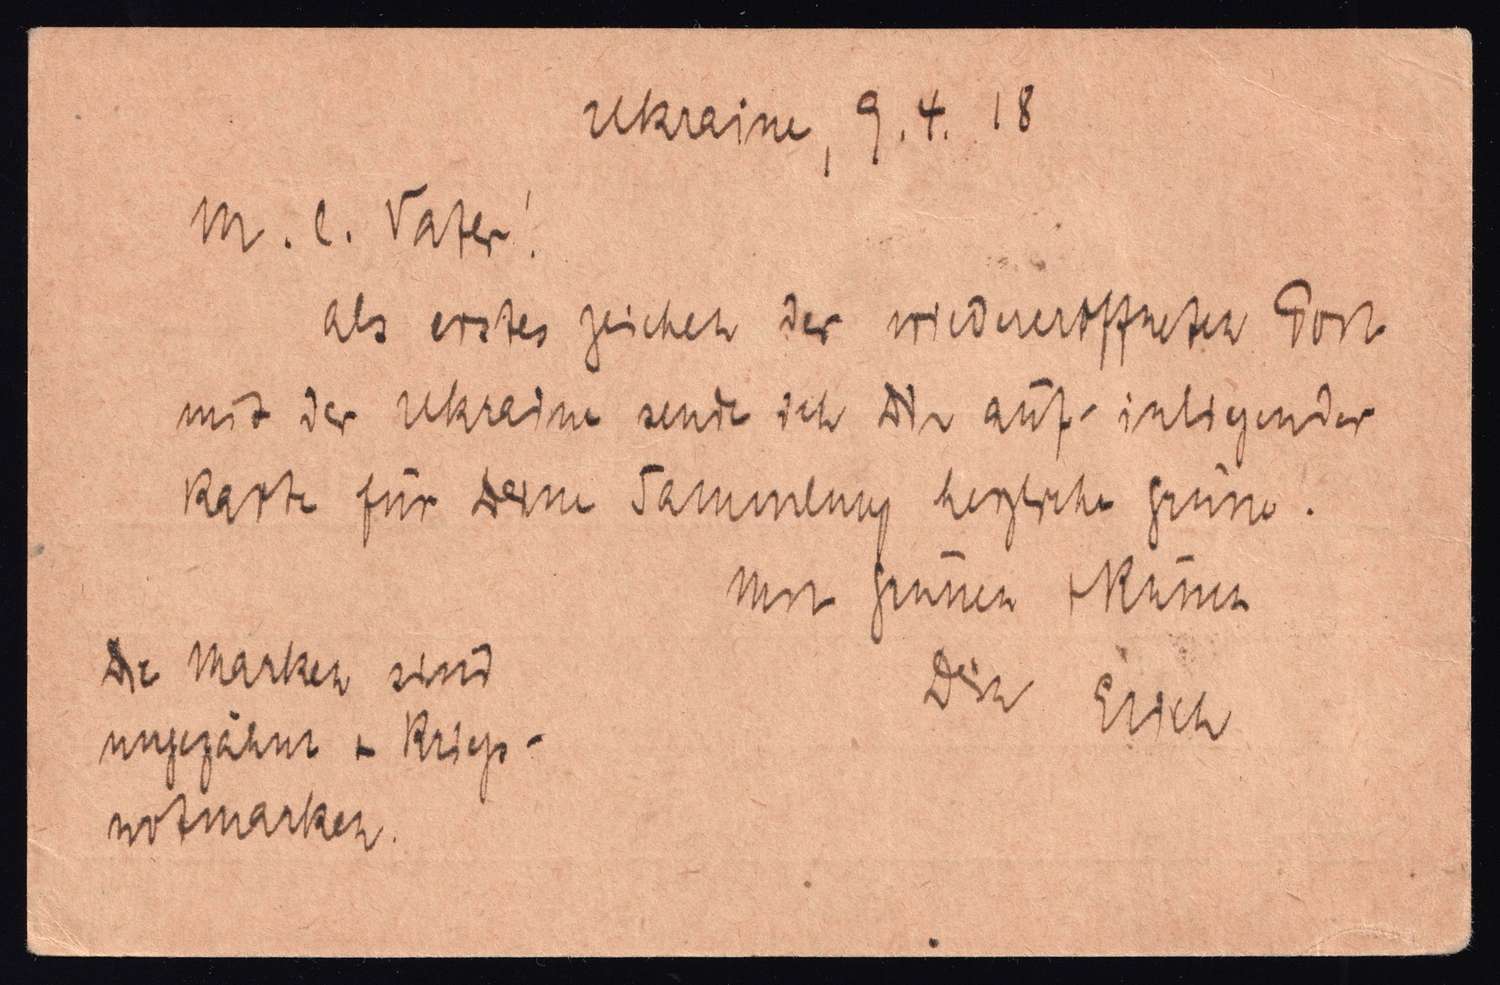 Ukraine, 9.4. 18
M. l. Vater!
Als erstes Zeichen der wiedereröffneten Post
mit der Ukraine sende ich Dir auf inligender
Karte für Deine Sammlung herzliche Grüße.
Mit Grüßen + Küßen
Dein Erich
Die Marken sind
ungezähnt + Kriegs-
notmarken.